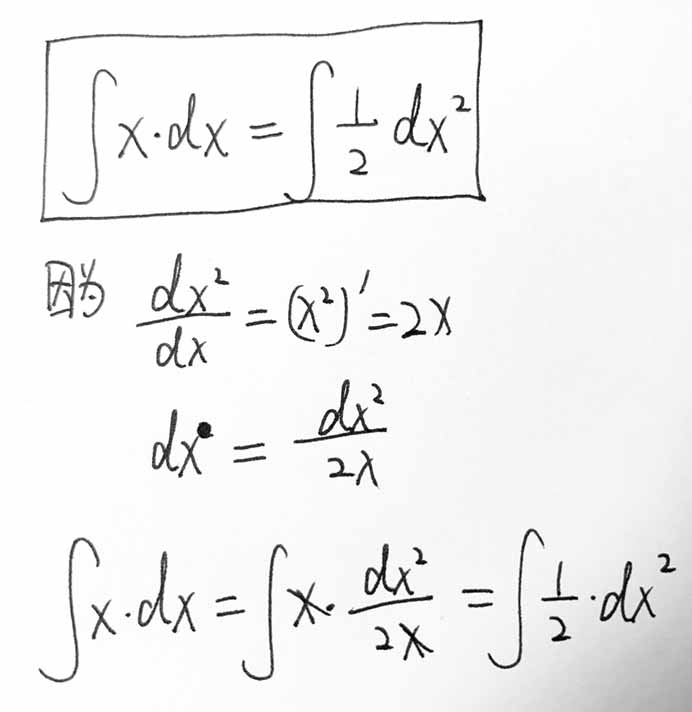 ∫x·dx = ∫ 1/2 dx²
因为 dx²/dx = (x²)' = 2x
dx = dx²/2x
∫x·dx = ∫x· dx²/2x = ∫ 1/2 ·dx²